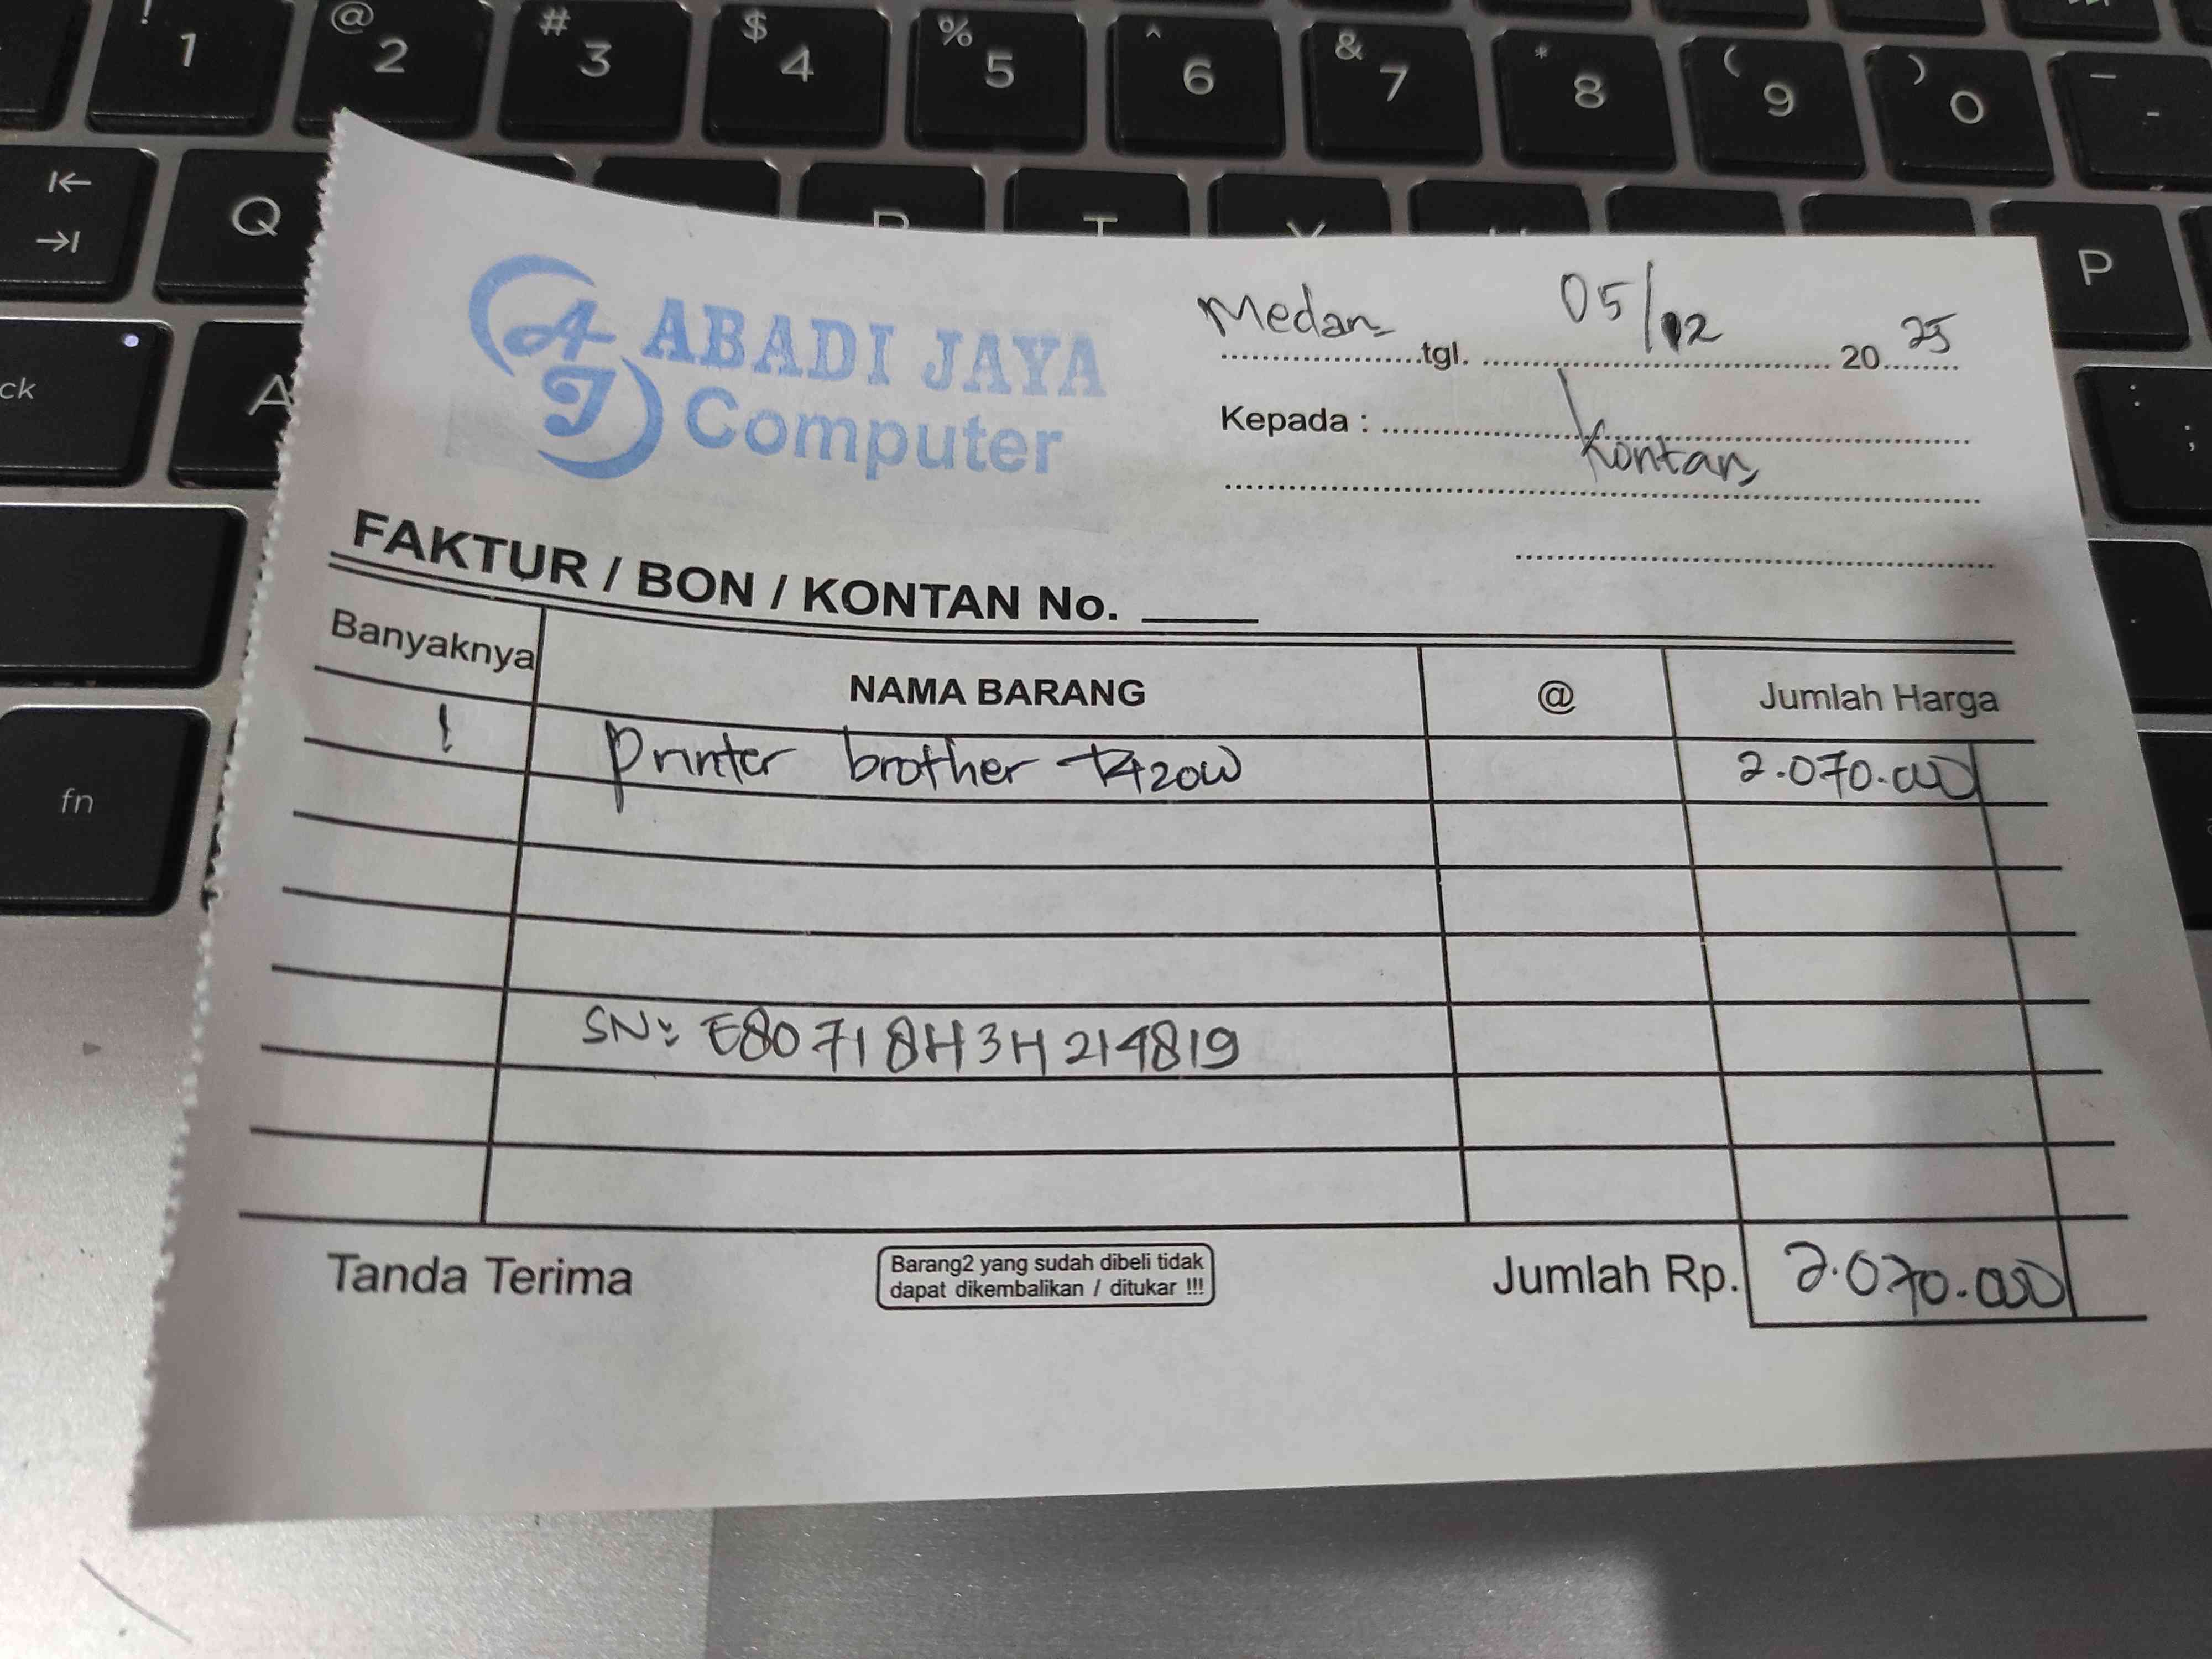 ! 1 @ 2 # 3 $ 4 % 5 ^ 6 & 7 * 8 ( 9 ) 0 _ -
Q P
A : ;
ck
fn
ABADI JAYA
Computer
AJ
Medan tgl. 05/12 20 25
Kepada :
Kontan
FAKTUR / BON / KONTAN No.
Banyaknya NAMA BARANG @ Jumlah Harga
1 Printer brother T420W 2.070.000
SN: E80718H3H214819
Tanda Terima
Barang2 yang sudah dibeli tidak
dapat dikembalikan / ditukar !!!
Jumlah Rp. 2.070.000